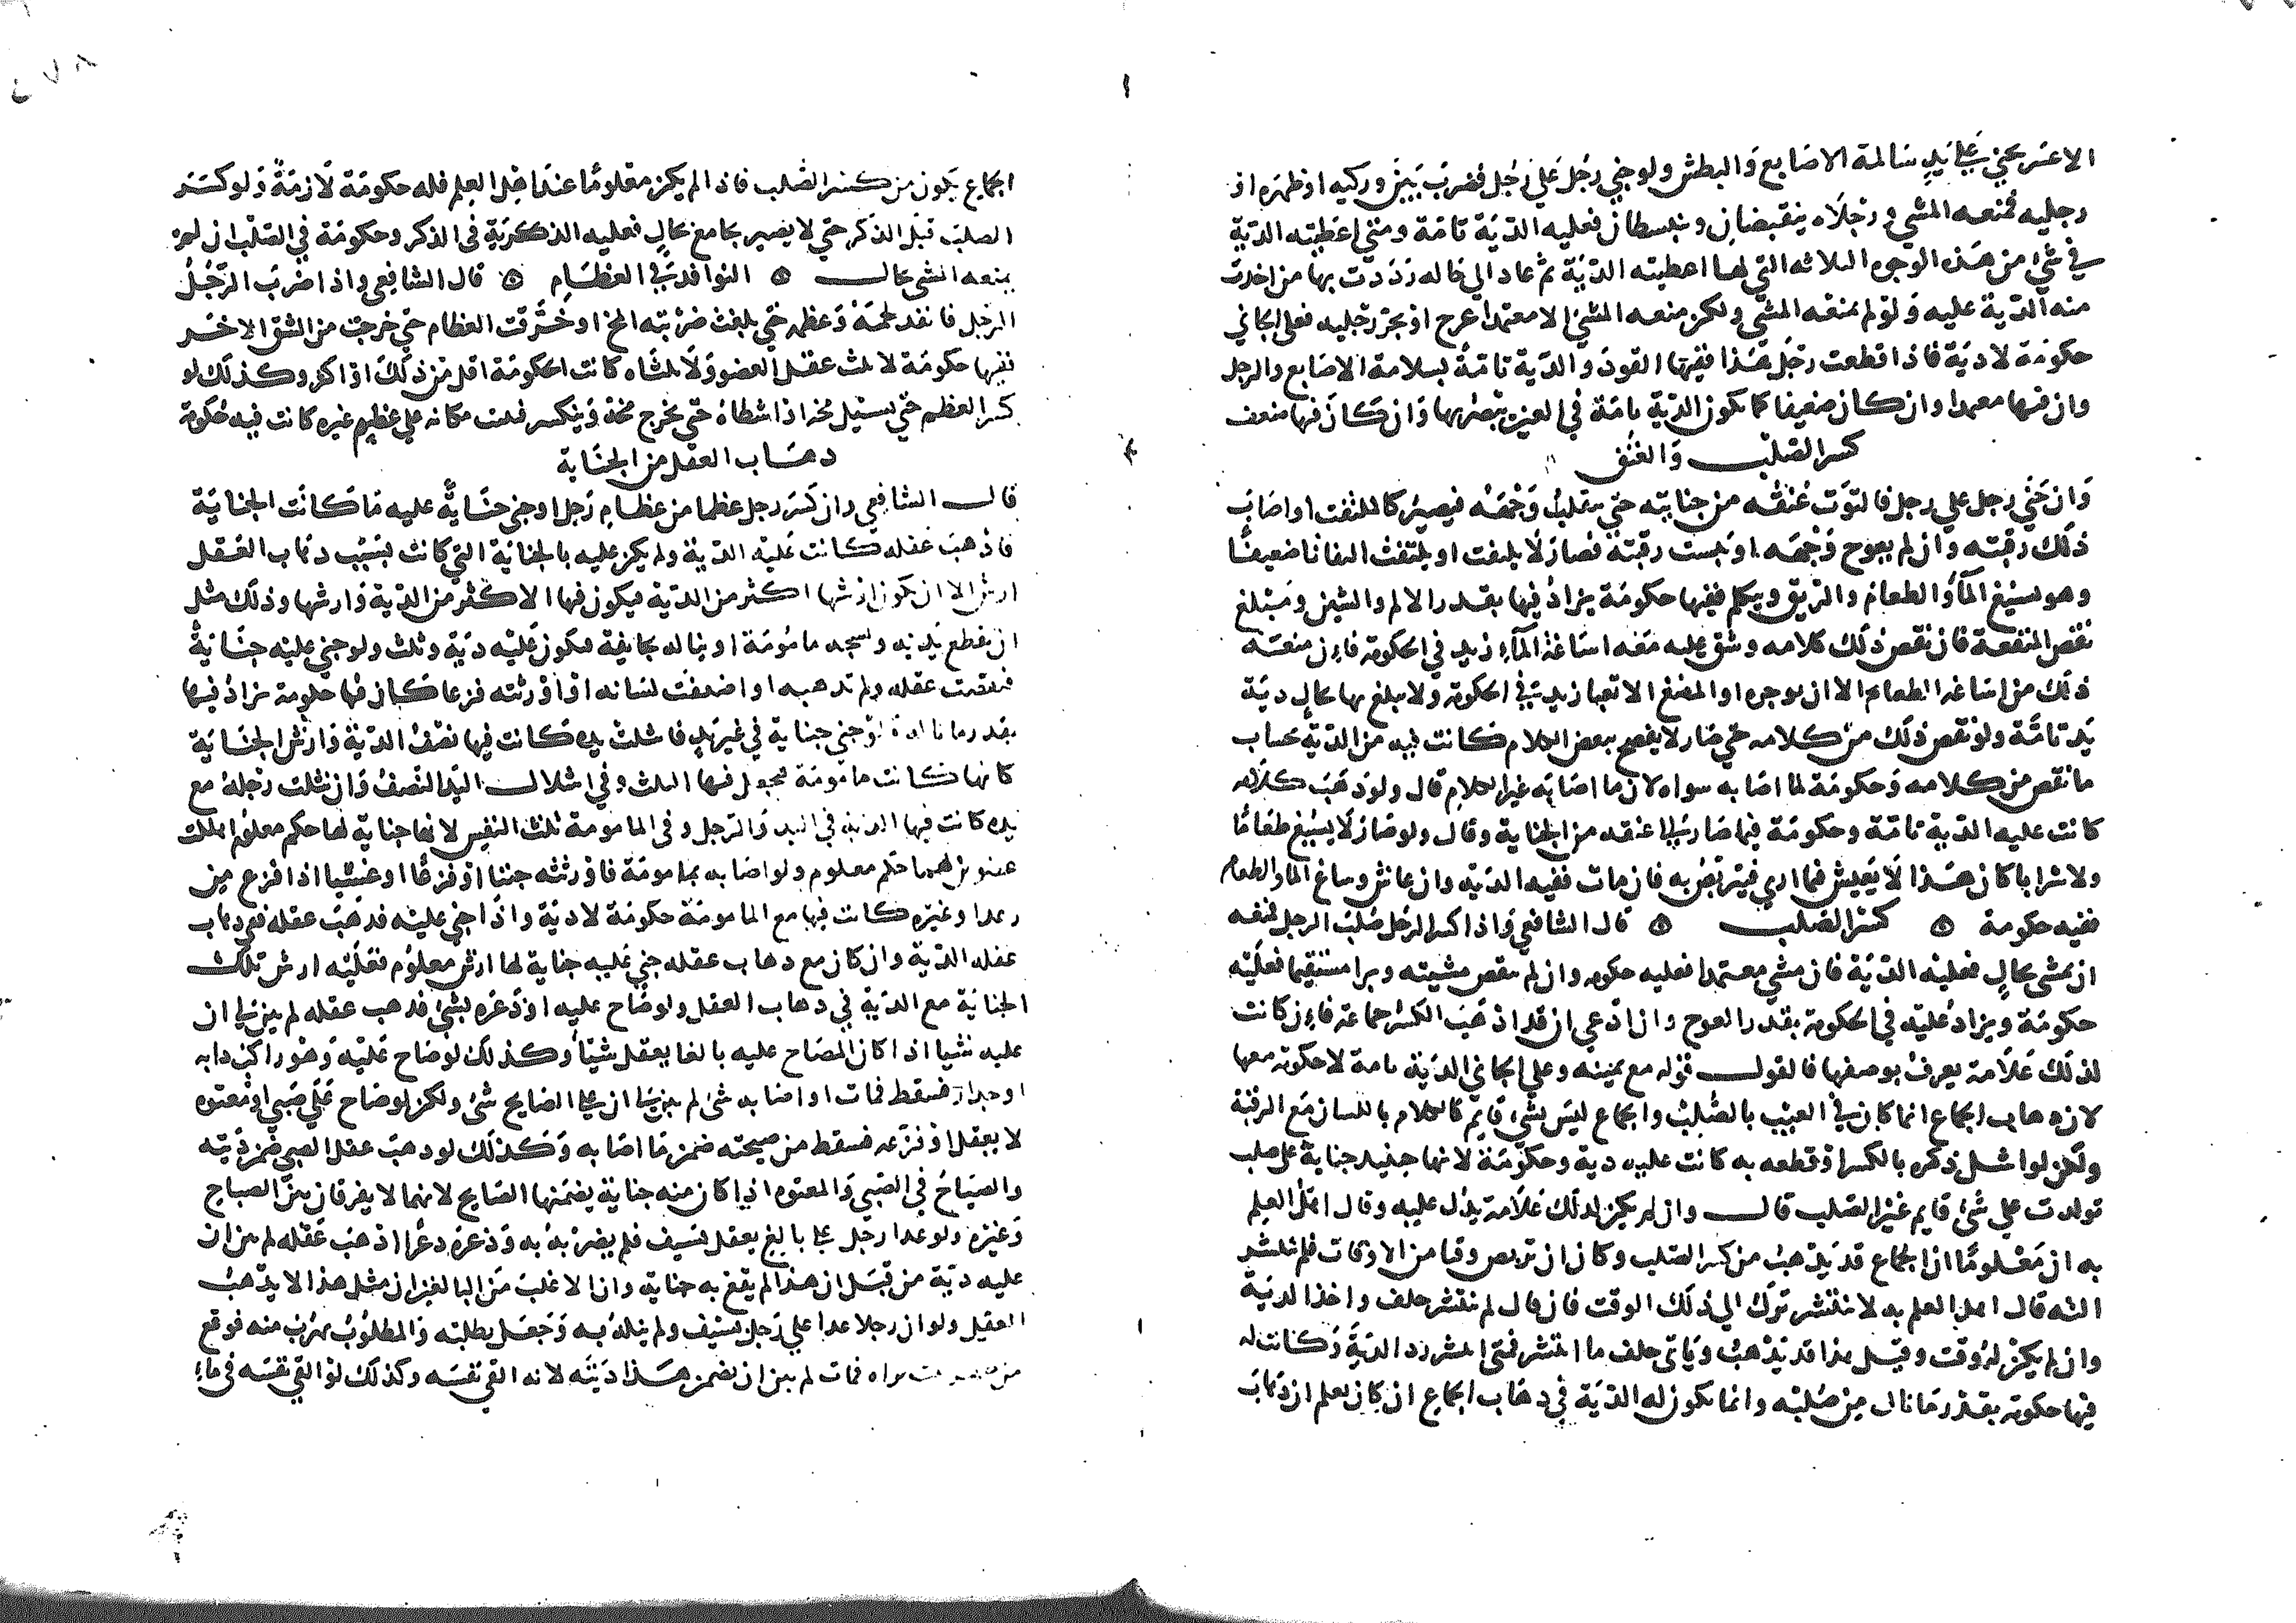 الاعسر يجنى على يد سالمة الاصابع والبطش ولو جنى رجل على رجل فضرب بين وركيه او ظهره او
رجليه فمنعه المشي ورجلاه ينقبضان وينبسطان فعليه الدية تامة ومتى اعطيته الدية
في شئ من هذه الوجوه الثلاثه التي لها اعطيته الدية ثم عاد الي حاله رددت بها من اخذت
منه الدية عليه ولو لم يمنعه المشي ولكن منعه المشي الا معتمدا عرج او يجر رجليه فعلى الجاني
حكومة لا دية فاذا قطعت رجل هذا ففيها القود والدية تامة بسلامة الاصابع والرجل
وان فيها معمدا وان كان ضعيفا كما تكون الدية تامة في العين يبصر بها وان كان فيها ضعف
كسر الصلب والعنق
وان جنى رجل على رجل فالتوت عنقه من جنايته حتى ينقلب وجهه فيصير كالملتفت او اصاب
ذلك رقبته وان لم يعوج وجهه او يبست رقبته فصار لا يلتفت او يلتفت التفاتا ضعيفا
وهو يسيغ الما والطعام والريق ويتكلم ففيها حكومة يزاد فيها بقدر الالم والشين ومبلغ
نقص المنفعة فان نقص ذلك كلامه وشق عليه معه اساغة الماء زيد في الحكومة فان منعته
ذلك من اساغه الطعام الا ان يوجره او المضغ الا تعبا زيد في الحكومة ولا يبلغ بها بحال دية
يد تامة ولو نقص ذلك من كلامه حتى صار لا يفصح ببعض الكلام كانت فيه من الدية بحساب
ما نقص من كلامه وحكومة لما اصابه سواه لان ما اصابه غير الكلام قال ولو ذهب كلامه
كانت عليه الدية تامة وحكومة فيما صار الى عنقه من الجناية وقال ولو صار لا يسيغ طعاما
ولا شرابا كان هذا لا يعيش فيما ارى فيتربص به فان مات ففيه الدية وان عاش وساغ الما والطعام
ففيه حكومة ه كسر الصلب ه قال الشافعي واذا كسر الرجل صلب الرجل فمنعه
ان يمشي بحال فعليه الدية فان مشى معتمدا فعليه حكومه وان لم تنقص مشيته وبرا مستقيما فعليه
حكومة ويزاد عليه في الحكومة بقدر العوج وان ادعي ان قد اذهب الكسر جماعه فان كانت
لذلك علامة يعرف بوصفها فالقول قوله مع يمينه وعلى الجاني الدية تامة لا حكومة معها
لان ذهاب الجماع انما كان في العيب بالصلب والجماع ليس بشئ قايم كالكلام باللسان مع الرقبة
ولكن لو اشل ذكره بالكسر او قطعه به كانت عليه دية وحكومة لانها حينيذ جناية على صلب
تولدت على شئ قايم غير الصلب قال وان لم يكن لذلك علامة يدل عليه وقال اهل العلم
به ان معلوما ان الجماع قد يذهب من كسر الصلب وكان ان تربص وقتا من الاوقات فلم ينتشر
الته قال اهل العلم به لا تنتشر ترك الي ذلك الوقت فان قال لم تنتشر حلف واخذ الدية
وان لم يكن له وقت وقيل هذا قد يذهب وياتي حلف ما انتشر فمتى انتشر رد الدية وكانت له
فيها حكومة بقدر ما نال من صلبه وانما تكون له الدية في ذهاب الجماع ان كان يعلم ان ذهاب
الجماع يكون من كسر الصلب فاذا لم يكن معلوما عند اهل العلم فله حكومة لازمة ولو كسر
الصلب قبل الذكر حتى لا يصير يجامع بحال فعليه الدية في الذكر وحكومة في الصلب ان لم
يمنعه المشي بحال ه النوافذ في العظام ه قال الشافعي واذا ضرب الرجل
الرجل فانفذ لحمه وعظمه حتى بلغت ضربته المخ او خرقت العظام حتى خرجت من الشق الاخر
ففيها حكومة لا ثلث عقل العضو ولا ثلثاه كانت الحكومة اقل من ذلك او اكثر وكذلك لو
كسر العظم حتى يسيل مخه او اشظاه حتى يخرج مخه وينكسر فنبت مكانه على عظم غيره كانت فيه حكومة
ذهاب العقل من الجناية
قال الشافعي وان كسر رجل عظما من عظام رجل او جنى جناية عليه ما كانت الجناية
فاذهب عقله كانت عليه الدية ولم يكن عليه بالجناية التي كانت بسبب ذهاب العقل
ارش الا ان تكون ارشها اكثر من الدية فيكون فيها الاكثر من الدية وارشها وذلك مثل
ان يقطع يديه ويشجه مامومة او يناله بجايفة فتكون عليه دية وثلث ولو جنى عليه جناية
فنقصت عقله ولم تذهبه او اضعفت لسانه او اورثته فزعا كان فيها حكومة يزاد فيها
بقدر ما ناله ولو جنى جناية في غير يد فاشلت يده كانت فيها نصف الدية وارش الجناية
كانها كانت مامومة فجعل فيها الثلث وفي اشلال اليد النصف وان شلت رجله مع
يده كانت فيها الدية في اليد والرجل وفي المامومة ثلث النفس لانها جناية لها حكم معلوم اهلكت
عضوين لهما حكم معلوم ولو اصابه بمامومة فاورثته جبنا او فزعا او غشيا اذا فزع من
رعد او غيره كانت فيها مع المامومة حكومة لا دية واذا جني عليه فذهب عقله ففي ذهاب
عقله الدية وان كان مع ذهاب عقله جنى عليه جناية لها ارش معلوم فعليه ارش تلك
الجناية مع الدية في ذهاب العقل ولو صاح عليه او ذعره بشئ فذهب عقله لم يبن لي ان
عليه شيا اذا كان المصاح عليه بالغا يعقل شيئا وكذلك لو صاح عليه وهو راكب دابه
او جدار فسقط فمات او اصابه شئ لم يبن لي ان على الصايح شئ ولكن لو صاح على صبي او معتوه
لا يعقل او فزعه فسقط من صيحته ضمن ما اصابه وكذلك لو ذهب عقل الصبي ضمن ديته
والصياح في الصبي والمعتوه اذا كان منه جناية يضمنها الصايح لانهما لا يفرقان بين الصياح
وغيره ولو عدا رجل على بالغ يعقل بسيف فلم يضربه به وذعره ذعرا اذهب عقله لم يبن ان
عليه دية من قبل ان هذا لم يقع به جناية وان الاغلب من البالغين ان مثل هذا لا يذهب
العقل ولو ان رجلا عدا على رجل بسيف ولم ينله به وجعل يطلبه والمطلوب يهرب منه فوقع
من يراه فمات لم يبن ان يضمن هذا ديته لانه القى نفسه وكذلك لو القى نفسه في ماء